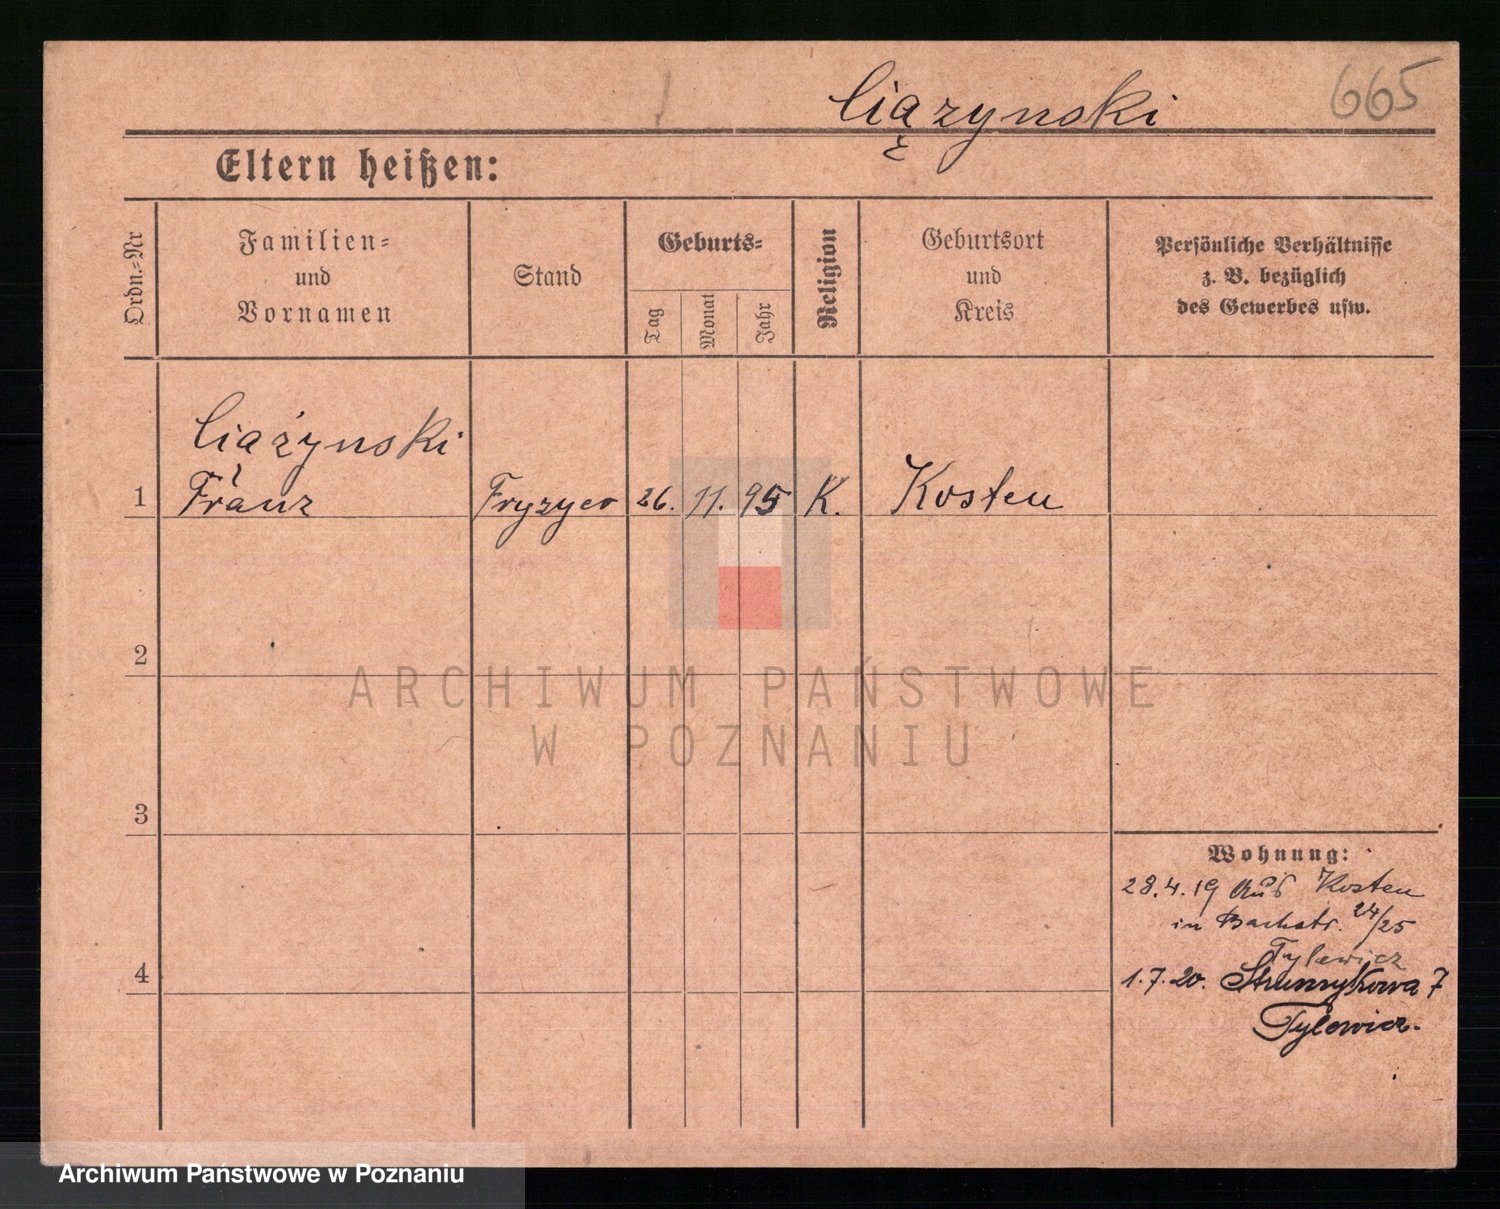 Ciązynski
665
Eltern heißen:
Ordn.=Nr
Familien=
und
Vornamen
Stand
Geburts=
Tag
Monat
Jahr
Religion
Geburtsort
und
Kreis
Persönliche Verhältnisse
z. B. bezüglich
des Gewerbes usw.
Ciążynski
1 Franz Fryzyer 26. 11. 95 K. Kosten
2
ARCHIWUM PAŃSTWOWE
W POZNANIU
3
Wohnung:
28.4.19 aus Kosten
in Bachstr. 24/25
Tylewicz
4
1.7.20. Strumykowa 7
Tylewicz.
Archiwum Państwowe w Poznaniu